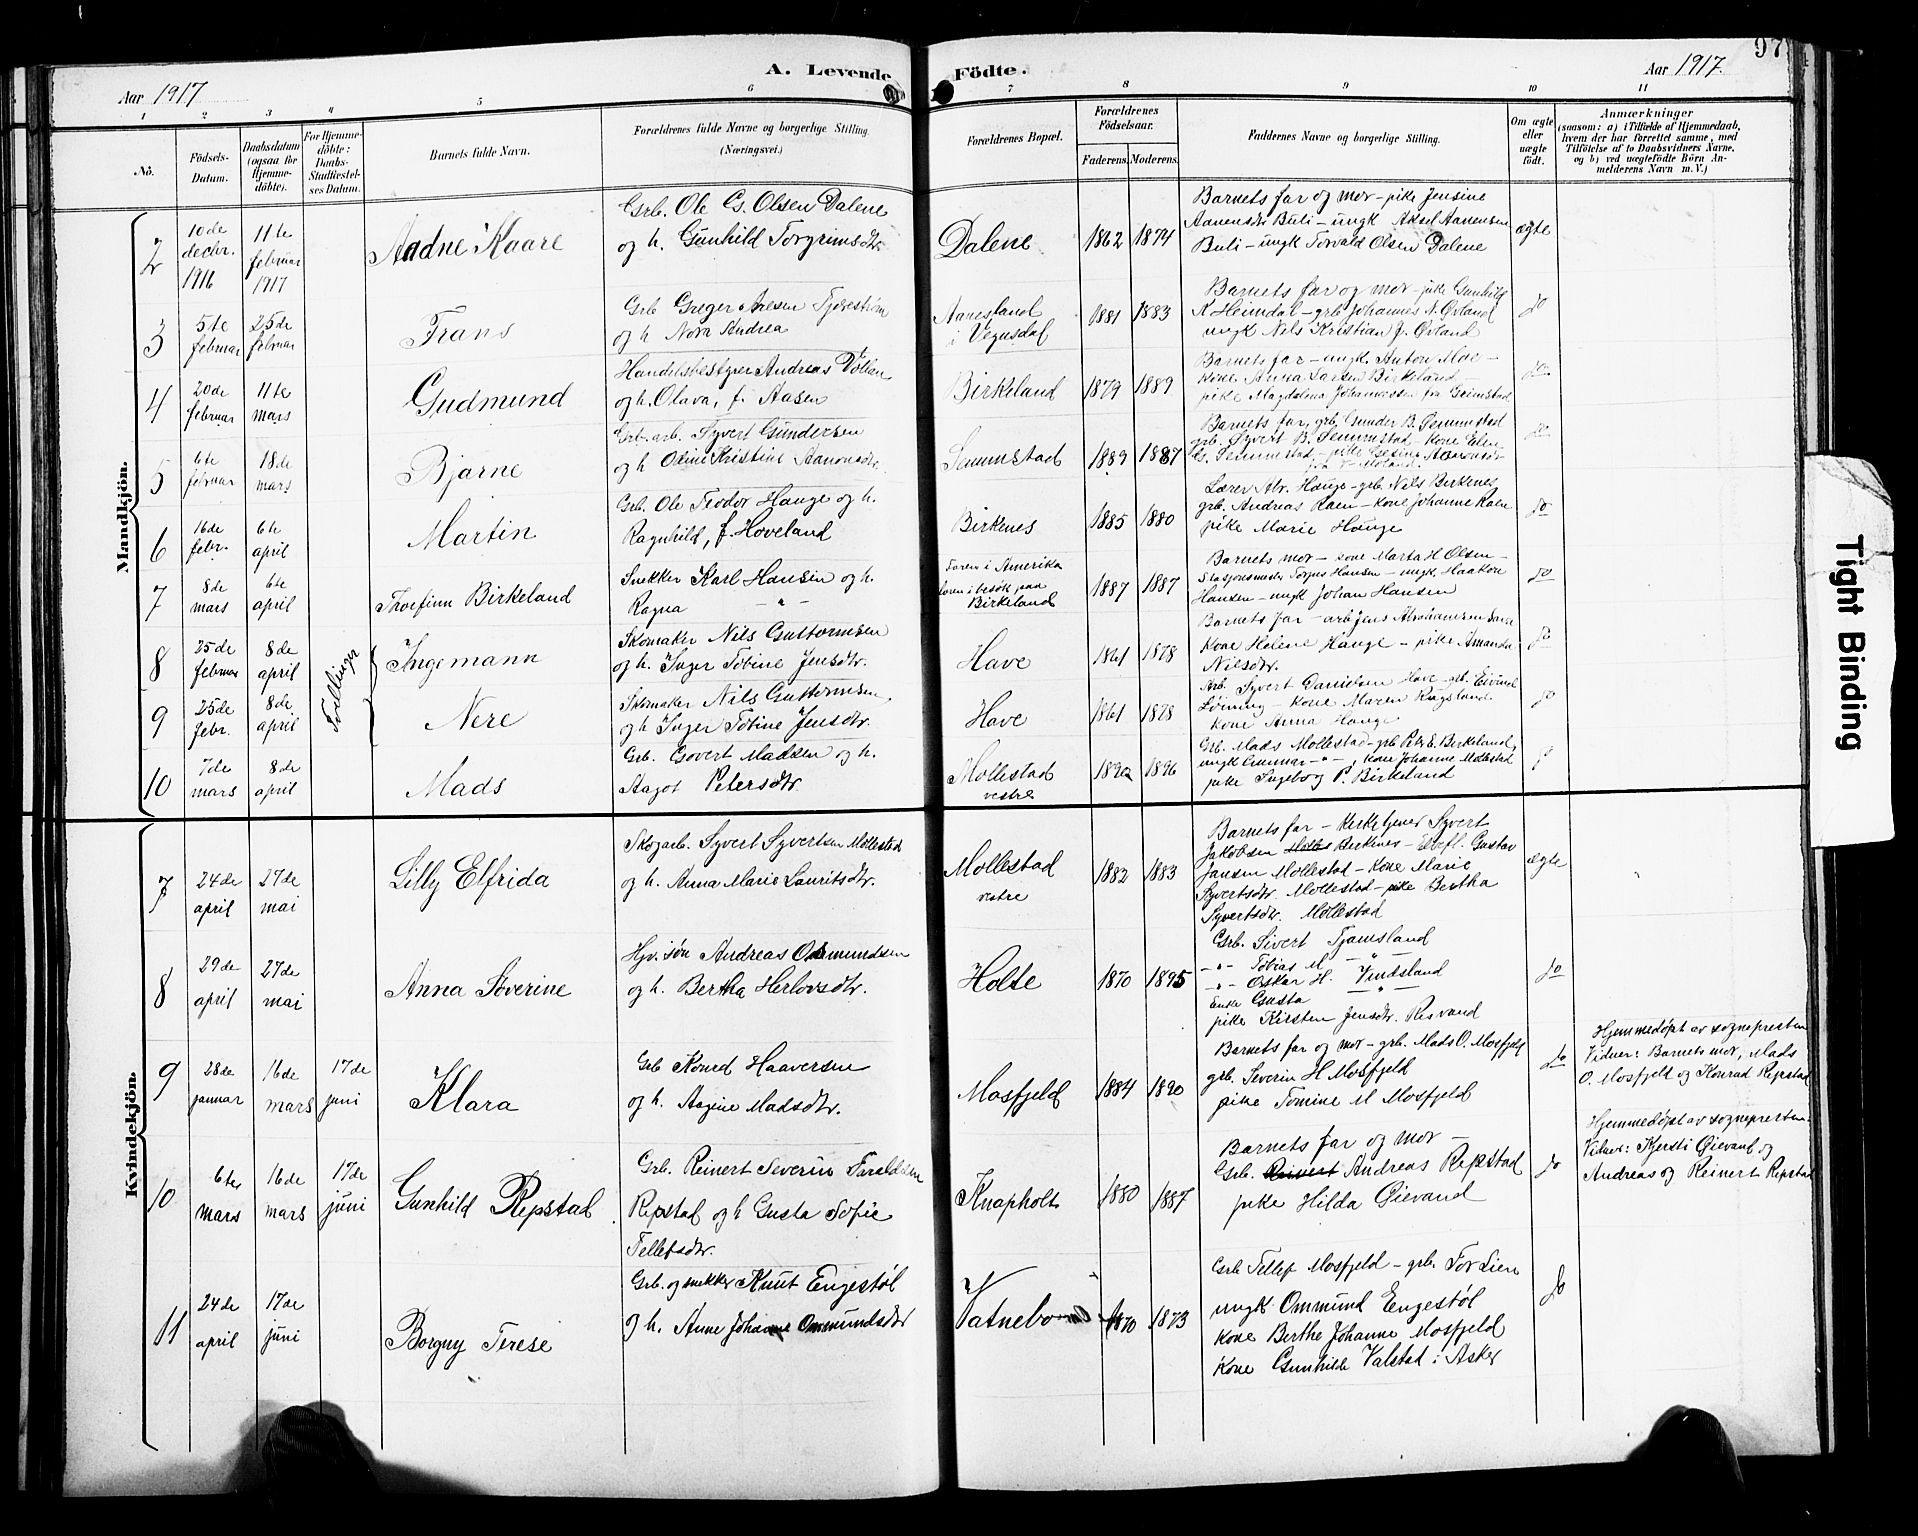 97
A. Levende Födte.
Aar 1917
Aar 1917.
1 2 3 4 5 6 7 8 9 10 11
No.
Födsels-Datum.
Daabsdatum (ogsaa for Hjemmedöbte).
For Hjemmedöbte: Daabs-Stadfæstelses Datum.
Barnets fulde Navn.
Forældrenes fulde Navne og borgerlige Stilling. (Næringsvei.)
Forældrenes Bopæl.
Forældrenes Födselsaar.
Faderens. Moderens.
Faddernes Navne og borgerlige Stilling.
Om ægte eller uægte födt.
Anmærkninger
(saasom: a) i Tilfælde af Hjemmedaab, hvem der har forrettet samme, med Tilföielse af to Daabsvidners Navne, og b) ved uægtefödte Börn Anmelderens Navn m. V.)
Mandkjön.
2
10de decbr. 1916
11te februar 1917
Aadne Kaare
Grb. Ole G. Olsen Dalene
og h. Gunhild Torgrimsdtr.
Dalene
1862 1874
Barnets far og mor - pike Jensine
Aanensdtr. Buli - ungk Aksel Aanensen
Buli - ungk Torvald Olsen Dalene
ægte
3
5te februar
25de februar
Frans
og h. Nora Andrea
Aanesland
i Vegusdal
1881 1883
Barnets far og mor - pike Gunhild
K Heimdal - grb Johannes N. Øvland
ungk Nils Kristian J. Øvland
do
4
20de februar
11te mars
Gudmund
Handelsbestyrer Andreas
og h. Olava, f. Aasen
Birkeland
1879 1889
Barnets far - ungk. Anton Moe -
kone Anna Larsen Birkeland
pike Magdalena Johannessen fra Grimstad
do
5
6te februar
18de mars
Bjarne
Grb. arb. Syvert Gundersen
og h Oline Kristine Aanonsdtr.
1889 1887
Barnets far, grb. Gunder B.
grb. Syvert B.
do
6
16de febr.
6te april
Martin
Grb. Ole Teodor Hauge og h.
Ragnhild, f. Hoveland
Birkenes
1885 1880
Lærer Hauge - grb. Nils Birkenes
grb. Andreas Raen - kone Johanne Raen
pike Marie Hauge
do
7
8de mars
6te april
Thorfinn Birkeland
Snekker Karl Hansen og h.
Ragna -"-
i Amerika
i besøk paa
Birkeland
1887 1887
Barnets mor - kone Marta H Olsen -
Hansen - ungk. Haakon
Hansen - ungk Johan Hansen
do
Tvillinger
8
25de februar
8de april
Ingemann
Skomaker Nils Guttormsen
og h. Inger Tobine Jensdtr.
Have
1861 1878
Barnets far - arb Jens Abrahamsen
Kone Helene Hauge - pike Amanda
Nilsdtr.
do
9
25de febr.
8de april
Nere
Skomaker Nils Guttormsen
og h Inger Tobine Jensdtr.
Have
1861 1878
Arb. Syvert Danielsen Have - grb. Eivind
kone Maren
kone Anna Hauge
do
10
7de mars
8de april
Mads
Grb. Govert Madsen og h.
Aagot Petersdtr.
Mollestad
vestre
1896
Grb. Mads Mollestad - grb Petr E. Birkeland
ungk Gunnar -"-, kone Johanne Mollestad
pike Ingebog P. Birkeland
Kvindekjön.
7
24de april
27de mai
Lilly Elfrida
Skogarb. Syvert Syvertsen Mollestad
og h. Anna Marie Lauritsdtr.
Mollestad
vestre
1882 1883
Barnets far - Kirketjener Syvert
Jakobsen Birkenes - Gustav
Jansen Mollestad - kone Marie
Syvertsdtr. Mollestad - pike Bertha
Syvertsdtr. Mollestad
ægte
8
29de april
27de mai
Anna Soverine
Andreas Osmundsen
og h. Bertha Herlovsdtr.
Holte
1870 1895
Grb. Sivert Tjomsland
-"- Tobias M -"-
-"- Oskar H. Vindsland
Enke Gusta -"-
pike Kirsten Jensdtr. Risvand
do
9
28de januar
16de mars
17de juni
Klara
Grb Konrd Haaversen
og h. Aagine Madsdtr.
Mosfjeld
1884 1890
Barnets far og mor - grb. Mads O. Mosfjeld
grb. Severin H Mosfjeld
pike Tomine M Mosfjeld
do
Hjemmedøpt av sognepresten
Vidner: Barnets mor, Mads
O. Mosfjelt og Konrad Repstad
10
6te mars
16de mars
17de juni
Gunhild Repstad
Grb. Reinert Severin Taraldsen
Repstad og h Gusta Sofie
Tellefsdtr.
Knapholt
1880 1887
Barnets far og mor -
Grb. Reinert Andreas Repstad
pike Hilda Øievand
do
Hjemmedøpt av sognepresten.
Vidner: Kjersti Øievand og
Andreas og Reinert Repstad
11
24de april
17de juni
Borgny Terese
Grb. og snekker Knut Engestøl
og h. Anne Johanne Ommundsdtr
1870 1873
Grb Tellef Mosfjeld - grb. Tor Lien
ungk Ommund Engestøl
Kone Berthe Johanne Mosfjeld
Kone Gunhilde Valstad i Asker
do
Tight Binding